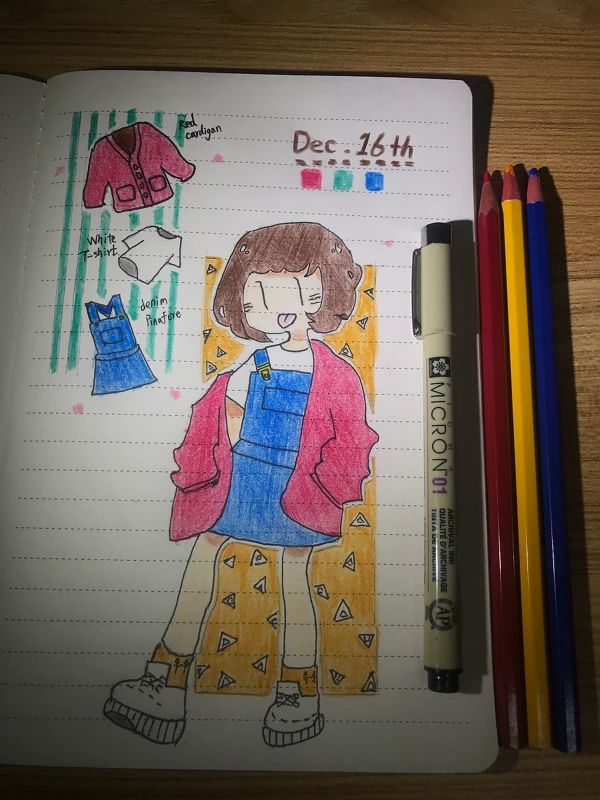 Red
cardigan
Dec. 16th
White
T-shirt
denim
Pinafore
MICRON 01
ARCHIVAL INK
QUALITÉ D'ARCHIVAGE
TINTA DE ARCHIVO
AP